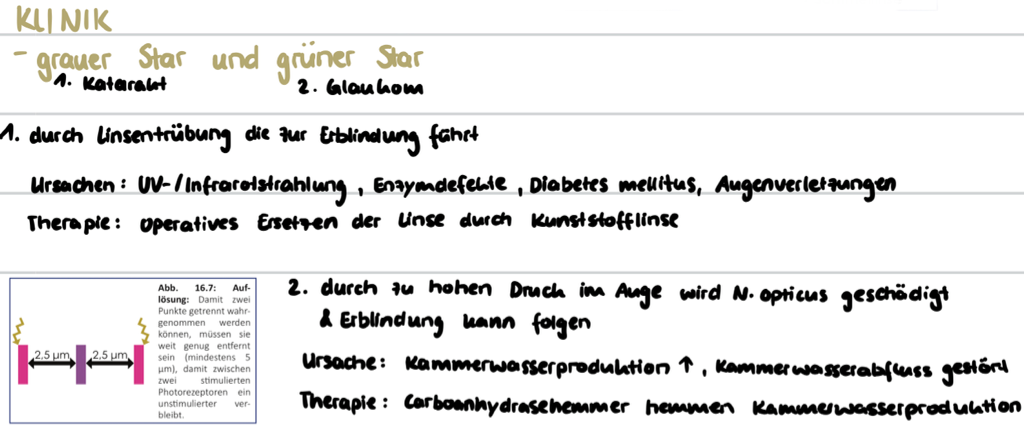 KLINIK
- grauer Star und grüner Star
1. Katarakt 2. Glaukom
1. durch Linsentrübung die zur Erblindung führt
Ursachen: UV-/Infrarotstrahlung, Enzymdefekte, Diabetes mellitus, Augenverletzungen
Therapie: operatives Ersetzen der Linse durch Kunststofflinse
Abb. 16.7: Auf-
lösung: Damit zwei
Punkte getrennt wahr-
genommen werden
können, müssen sie
weit genug entfernt
sein (mindestens 5
µm), damit zwischen
zwei stimulierten
Photorezeptoren ein
unstimulierter ver-
bleibt.
2,5 µm 2,5 µm
2. durch zu hohen Druck im Auge wird N. opticus geschädigt
& Erblindung kann folgen
Ursache: Kammerwasserproduktion ↑, Kammerwasserabfluss gestört
Therapie: Carboanhydrasehemmer hemmen Kammerwasserproduktion